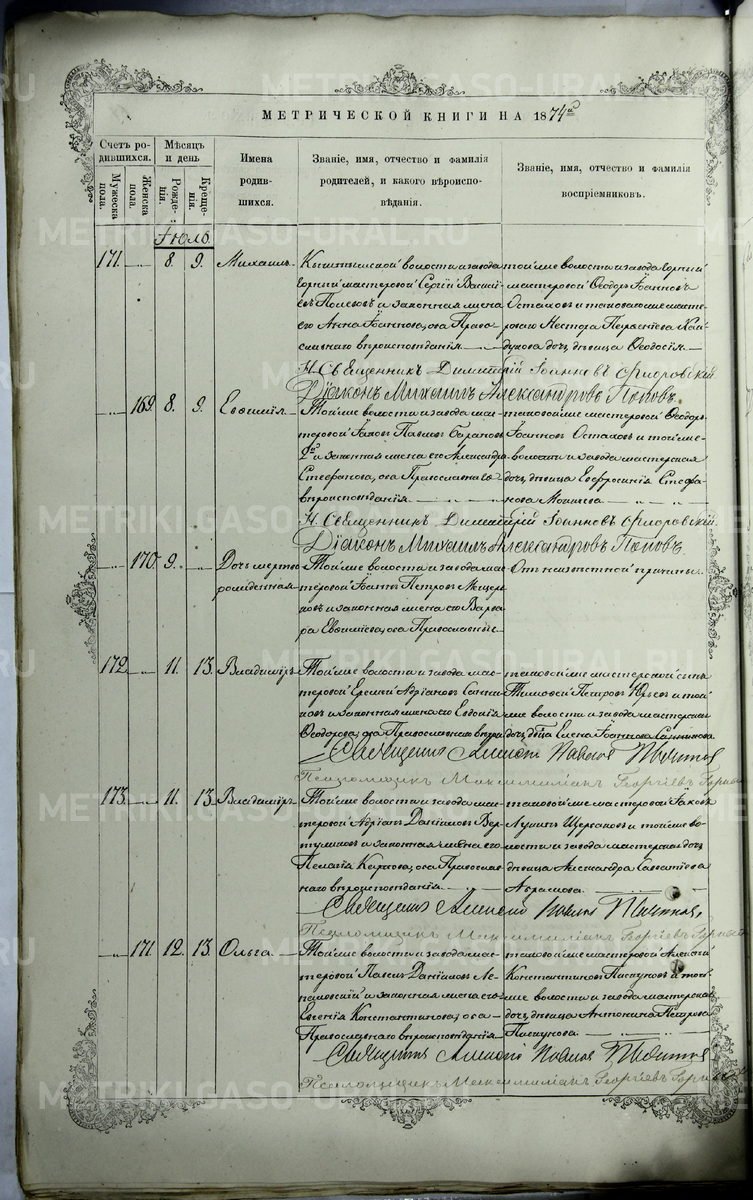 METRIKI.GASO-URAL.RU
МЕТРИЧЕСКОЙ КНИГИ НА 1874й
Счетъ родившихся.
Мужеска пола.
Женска пола.
Мѣсяцъ и день
Рожденія.
Крещенія.
Имена родившихся.
Званіе, имя, отчество и фамилія родителей, и какого вѣроисповѣданія.
Званіе, имя, отчество и фамилія воспріемниковъ.
Іюль.
171. 8. 9. Михаилъ
Кыштымской волости и завода
Горный мастеровой Сергій Василь
евъ Полевъ и законная жена
его Анна Іоаннова, оба Право
славнаго вѣроисповѣданія
той же волости и завода Горный
мастеровой Ѳеодоръ Іоанновъ
Остаховъ и таковаго же масте
роваго Нестора
дочь, дѣвица Ѳеодосія
Н. Священникъ Димитрій Іоанновъ Флоровскій
Діаконъ Михаилъ Александровъ Поповъ
169. 8. 9. Евѳимія
Той же волости и завода мас
теровой Іаковъ Павловъ Барановъ
2й и законная жена его Александра
Стефанова, оба Православнаго
вѣроисповѣданія
таковой же мастеровой Ѳеодоръ
Іоанновъ Остаховъ и той же
волости и завода мастерская
дочь, дѣвица Евфросинія Стефа
нова
Н. Священникъ Димитрій Іоанновъ Флоровскій
Діаконъ Михаилъ Александровъ Поповъ
170. 9. Дочь мертво
рожденная
Той же волости и завода мас
теровой Іоаннъ Петровъ Мещеря
ковъ и законная жена его Варва
ра Евѳиміева, оба Православные
Отъ неизвѣстной причины.
172. 11. 13. Владиміръ
Той же волости и завода мас
теровой Еремій Адріановъ Санни
ковъ и законная жена его Евдокія
Ѳеодорова, оба Православнаго вѣро
таковой же мастерской сынъ
Тимоѳей Петровъ Юрьевъ и той
же волости и завода мастерская
дочь, дѣвица Елена Іоаннова Санникова
Священникъ Алексій Павловъ
Псаломщикъ Максимиліанъ Георгіевъ
173. 11. 13. Владиміръ
Той же волости и завода мас
теровой Адріанъ Даніиловъ Вер
туновъ и законная жена его
Пелагія Карпова, оба Правосла
внаго вѣроисповѣданія
таковой же мастеровой Іаковъ
Лукинъ Щербаковъ и той же во
лости и завода мастерская дочь,
дѣвица Александра Савватіева
Абрамова
Священникъ Алексій Павловъ
Псаломщикъ Максимиліанъ Георгіевъ
171. 12. 13. Ольга
Той же волости и завода мас
теровой Павелъ Даніиловъ Ле
и законная жена его
Евгенія Константинова, оба
Православнаго вѣроисповѣданія
таковой же мастеровой Алексій
Константиновъ Пискуновъ и той
же волости и завода мастерская
дочь, дѣвица Антонина Петрова
Пискунова
Священникъ Алексій Павловъ
Псаломщикъ Максимиліанъ Георгіевъ